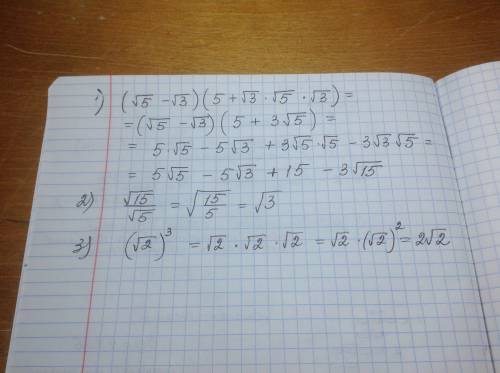 1) (√5 − √3)(5 + √3 · √5 · √3) =
= (√5 − √3) (5 + 3√5) =
= 5·√5 − 5√3 + 3√5·√5 − 3√3√5 =
= 5√5 − 5√3 + 15 − 3√15
2) √15/√5 = √(15/5) = √3
3) (√2)³ = √2 · √2 · √2 = √2 · (√2)² = 2√2